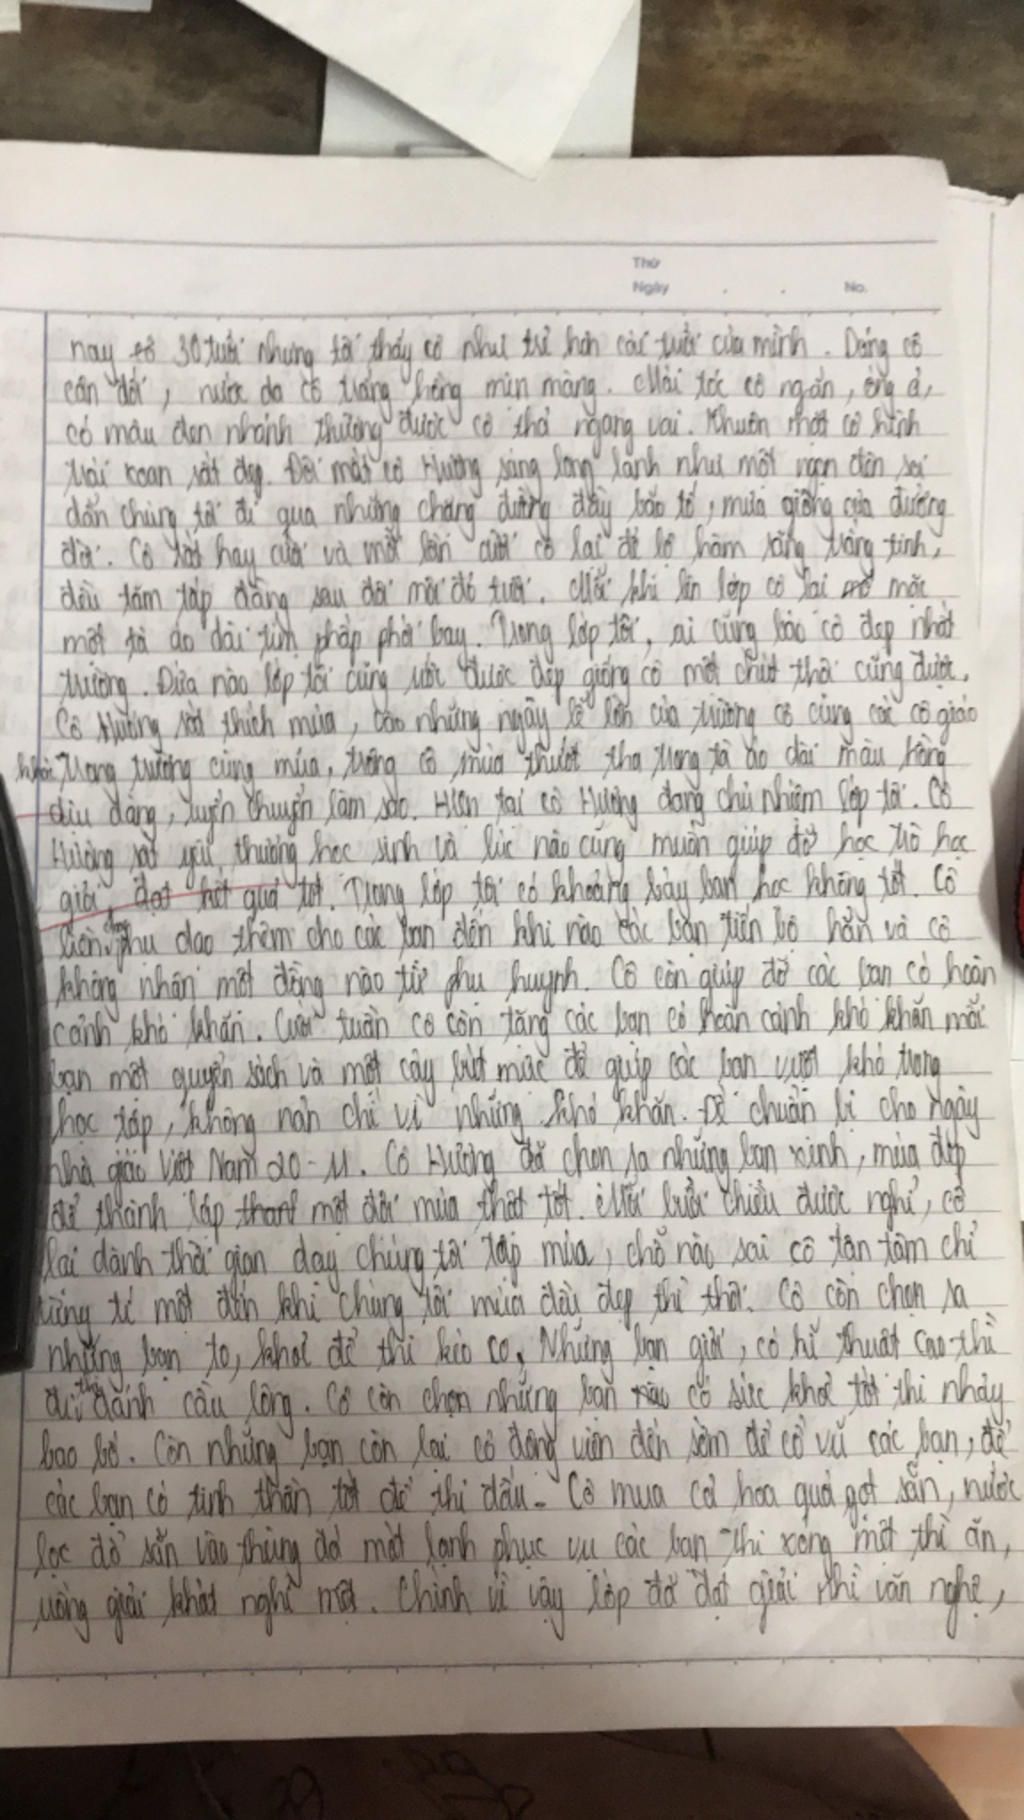 Thứ
Ngày . . No.
nay cô 30 tuổi nhưng tôi thấy cô như trẻ hơn cái tuổi của mình. Dáng cô
cân đối, nước da cô trắng hồng mịn màng. Mái tóc cô ngắn, óng ả,
có màu đen nhánh thường được cô thả ngang vai. Khuôn mặt cô hình
trái xoan rất đẹp. Đôi mắt cô Hương sáng long lanh như một ngọn đèn soi
dẫn chúng tôi đi qua những chặng đường đầy bão tố, mưa giông của đường
đời. Cô rất hay cười và mỗi lần cười cô lại để lộ hàm răng trắng tinh,
đều tăm tắp đằng sau đôi môi đỏ tươi. Mỗi khi lên lớp cô lại mặc
một tà áo dài tím phấp phới bay. Trong lớp tôi, ai cũng bảo cô đẹp nhất
trường. Đứa nào lớp tôi cũng ước được đẹp giống cô một chút thôi cũng được.
Cô Hương rất thích múa, vào những ngày lễ lớn của trường cô cùng các cô giáo
khác trong trường cùng múa, trông cô múa thướt tha trong tà áo dài màu hồng
dịu dàng, uyển chuyển làm sao. Hiện tại cô Hương đang chủ nhiệm lớp tôi. Cô
Hương rất yêu thương học sinh và lúc nào cũng muốn giúp đỡ học trò học
giỏi, đạt kết quả tốt. Trong lớp tôi có khoảng bảy bạn học không tốt. Cô
liền phụ đạo thêm cho các bạn đến khi nào các bạn tiến bộ hẳn và cô
không nhận một đồng nào từ phụ huynh. Cô còn giúp đỡ các bạn có hoàn
cảnh khó khăn. Cuối tuần cô còn tặng các bạn có hoàn cảnh khó khăn mỗi
bạn một quyển sách và một cây bút mực để giúp các bạn vượt khó trong
học tập, không nản chí vì những khó khăn. Để chuẩn bị cho ngày
nhà giáo Việt Nam 20-11. Cô Hương đã chọn ra những bạn xinh, múa đẹp
để thành lập một đội múa thật tốt. Mỗi buổi chiều được nghỉ, cô
lại dành thời gian dạy chúng tôi tập múa, chỗ nào sai cô tận tâm chỉ
từng tí một đến khi chúng tôi múa đều đẹp thì thôi. Cô còn chọn ra
những bạn to, khoẻ để thi kéo co. Những bạn giỏi, có kĩ thuật cao thì
đi thi đánh cầu lông. Cô còn chọn những bạn nào có sức khoẻ tốt thi nhảy
bao bố. Còn những bạn còn lại cô động viên đến sớm để cổ vũ các bạn, để
các bạn có tinh thần tốt để thi đấu. Cô mua cả hoa quả gọt sẵn, nước
lọc đổ sẵn vào thùng đá mát lạnh phục vụ các bạn thi xong mệt thì ăn,
uống giải khát nghỉ mệt. Chính vì vậy lớp đã đạt giải nhì văn nghệ,